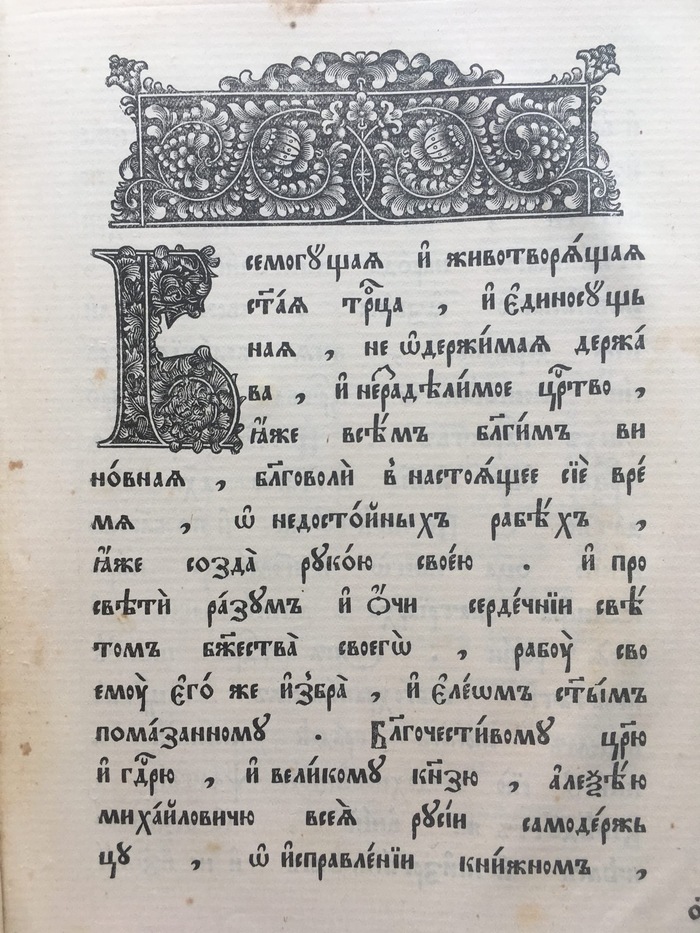 Всемогꙋ́щая и҆ животворѧ́щаѧ
ст҃а́ѧ трⷪ҇ца , и҆ є҆диносꙋ́щь
наѧ , не ѡ҆держи́маѧ держа́
ва , и҆ нера́здѣли́мое црⷭ҇тво ,
ꙗ҆́же всѣ́мъ бл҃ги́мъ ви
но́внаѧ , бл҃говолѝ в̾ настоѧ́щее сїѐ вре́
мѧ , ѡ҆ недосто́йныхъ рабѣ́хъ ,
ꙗ҆́же созда̀ руко́ю своею́ . и҆ про
свѣтѝ ра́зумъ и҆ ѻ҆́чи серде́чнїи свѣ́
томъ бж҃ества̀ своегѡ̀ , рабоу̀ сво
емоу̀ є҆го́ же и҆збра̀ , и҆ є҆ле́ѡмъ ст҃ы́мъ
пома́занномꙋ . Бл҃гочести́вомꙋ цр҃ю
и҆ гдⷭ҇рю , и҆ вели́комꙋ кн҃зю , а҆леѯѣ́ю
миха́йловичю всеѧ̀ рꙋсі́и самоде́ржь
цꙋ , ѡ҆ и҆справле́нїи кни́жномъ ,